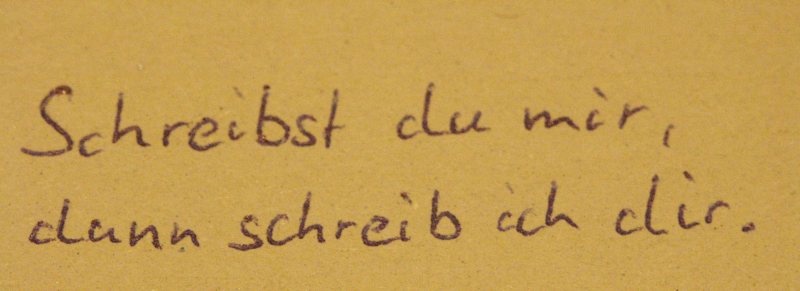 Schreibst du mir,
dann schreib ich dir.